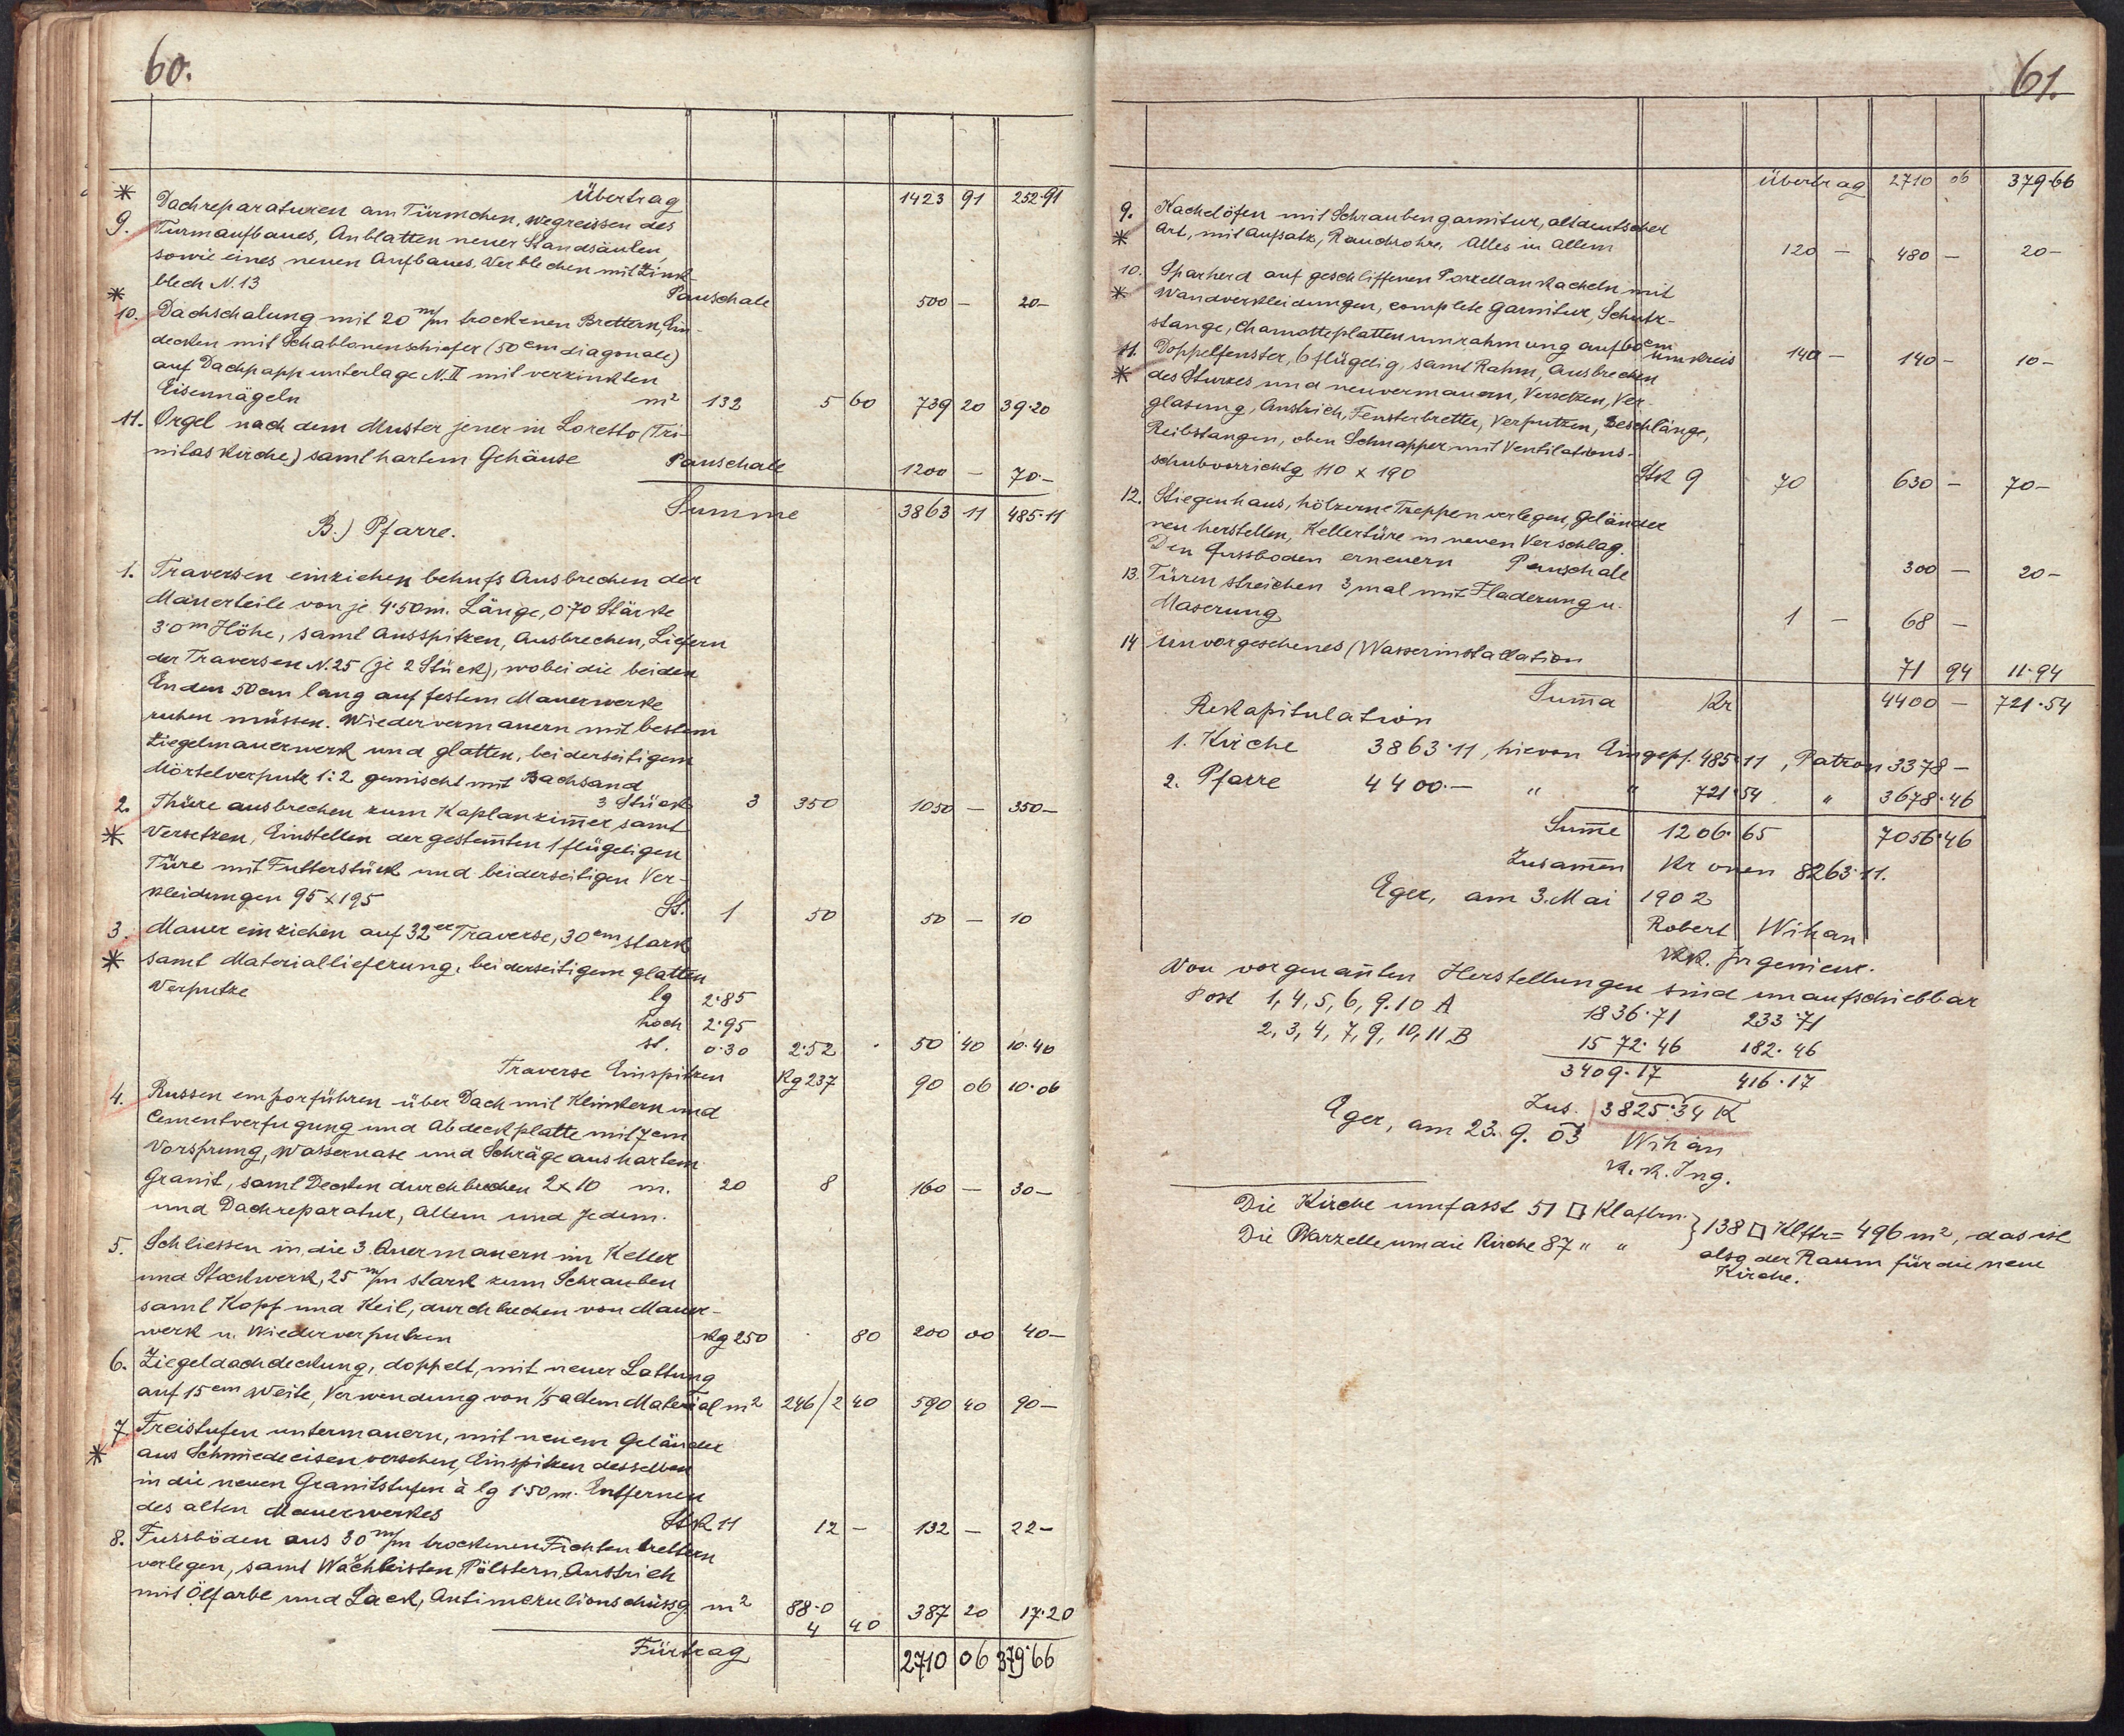 60.
Übertrag 1423 91 252·91
* 9. Dachreparaturen am Türmchen, wegreissen des
Turmaufbaues, Anblatten neuer Standsäulen,
sowie eines neuen Aufbaues, Verblechen mit Zink-
blech N. 13 Pauschale 500 — 20-
* 10. Dachschalung mit 20 m/m trockenen Brettern, Ein-
decken mit Schablonenschiefer (50 cm diagonale)
auf Dachpappunterlage N. II mit verzinkten
Eisennägeln m² 132 5 60 739 20 39·20
11. Orgel nach dem Muster jener in Loretto (Tri-
nitaskirche) samt hartem Gehäuse Pauschale 1200 — 70·-
Summe 3863 11 485·11
B.) Pfarre.
1. Traversen einziehen behufs Ausbrechen der
Mauerteile von je 4·50 m. Länge, 0·70 Stärke
3·0 m Höhe, samt Ausspitzen, Ausbrechen, Liefern
der Traversen N. 25 (je 2 Stück), wobei die beiden
Enden 50 cm lang auf festem Mauerwerke
ruhen müssen. Wiedervermauern mit bestem
Ziegelmauerwerk und glatten, beiderseitigem
Mörtelverputz 1:2 gemischt mit Bachsand
3 Stück 3 350 1050 — 350—
2. Thüre ausbrechen zum Kaplanzim̅er samt
* Versetzen, Einstellen der gestem̅ten 1 flügeligen
Türe mit Futterstück und beiderseitigen Ver-
kleidungen 95 x 195 St. 1 50 50 — 10
3. Mauer einziehen auf 32er Traverse, 30 cm stark
* samt Materiallieferung, beiderseitigem glatten
Verputze lg 2·85
hoch 2·95
st. 0·30 2·52 50 40 10·40
Traverse Einspitzen Kg 237 90 06 10·06
4. Russen emporführen über Dach mit Klinkern und
Cementverfugung und Abdeckplatte mit 7 cm
Vorsprung, Wassernase und Schräge aus hartem
Granit, samt Decken durchbrechen 2 x 10 m. 20 8 160 — 30—
und Dachreparatur, Allem und Jedem.
5. Schliessen in die 3 Quermauern im Keller
und Stockwerk, 25 m/m stark zum Schrauben
samt Kopf und Keil, durchbrechen von Mauer-
werk u. Wiederverputzen Kg 250 80 200 00 40—
6. Ziegeldachdeckung, doppelt, mit neuer Lattung
auf 15 cm Weite, Verwendung von 1/5 altem Material m² 246/2 40 590 40 90—
7. Freistufen untermauern, mit neuem Geländer
* aus Schmiedeeisen versehen, Einspitzen desselben
in die neuen Granitstufen à lg 1·50 m. Entfernen
des alten Mauerwerkes Stk 11 12 — 132 — 22—
8. Fussböden aus 30 m/m trockenen Fichtenbrettern
verlegen, samt Pölstern, Anstrich
mit Ölfarbe und Lack, m² 88·0 387 20 17·20
4 40
Fürtrag 2710 06 379·66
61.
Übertrag 2710 06 379·66
9. Kachelöfen mit Schraubengarnitur, altdeutscher
* Art, mit Aufsatz, Rauchrohre, Alles in Allem 120 — 480 — 20-
10. Sparherd auf geschliffenen Porzellankacheln mit
* Wandverkleidungen, complete Garnitur, Schutz-
stange, Chamotteplattenumrahmung auf 60 cm
Umkreis 140 — 140 — 10-
11. Doppelfenster, 6 flügelig, samt Rahm, Ausbrechen
* des Sturzes und neuvermauern, Versetzen, Ver-
glasung, Anstrich, Fensterbretter, Verputzen, Beschlänge,
Reibstangen, oben Schnapper mit Ventilations-
schubvorrichtg 110 x 190 Stk 9 70 630 — 70-
12. Stiegenhaus, hölzerne Treppen verlegen, Geländer
neu herstellen, Kellertüre in neuen Verschlag.
Den Fussboden erneuern Pauschale 300 — 20-
13. Türen streichen 3 mal mit Fladerung u.
Maserung 1 — 68 —
14 Unvorgesehenes (Wasserinstallation 71 94 11·94
Sum̅a Kr 4400 — 721·54
Rekapitulation
1. Kirche 3863·11, hievon Eingepf. 485·11, Patron 3378-
2. Pfarre 4400·— " " 721·54 " 3678·46
Sum̅e 1206·65 7056·46
Zusam̅en Kronen 8263·11.
Eger, am 3. Mai 1902
Robert Wihan
k.k. Ingenieur.
Von vorgenan̅ten Herstellungen sind unaufschiebbar
Post 1, 4, 5, 6, 9. 10 A 1836·71 233·71
2, 3, 4, 7, 9, 10, 11 B 1572·46 182·46
3409·17 416·17
Zus. 3825·34 K
Eger, am 23. 9. 03 Wihan
k. k. Ing.
Die Kirche umfasst 51 □ Klaftrn. } 138 □ Klftr = 496 m², das ist
Die Parzelle um die Kirche 87 " " also der Raum für die neue
Kirche.